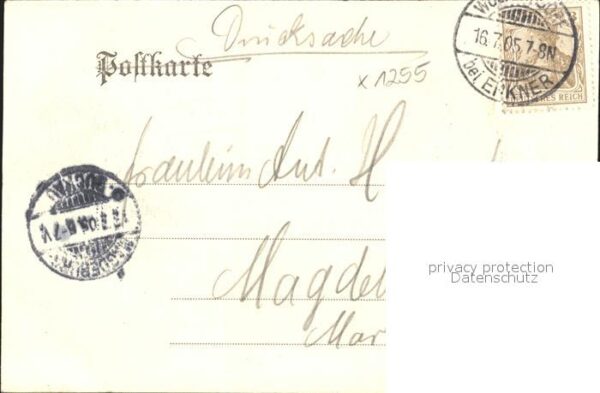 Drucksache
Postkarte
x 1255
16.7.05.7-8N
bei ERKNER
REICH
Fräulein Ant. H
MAGDEBURG
BUCKAU
Magde
Mar
privacy protection
Datenschutz